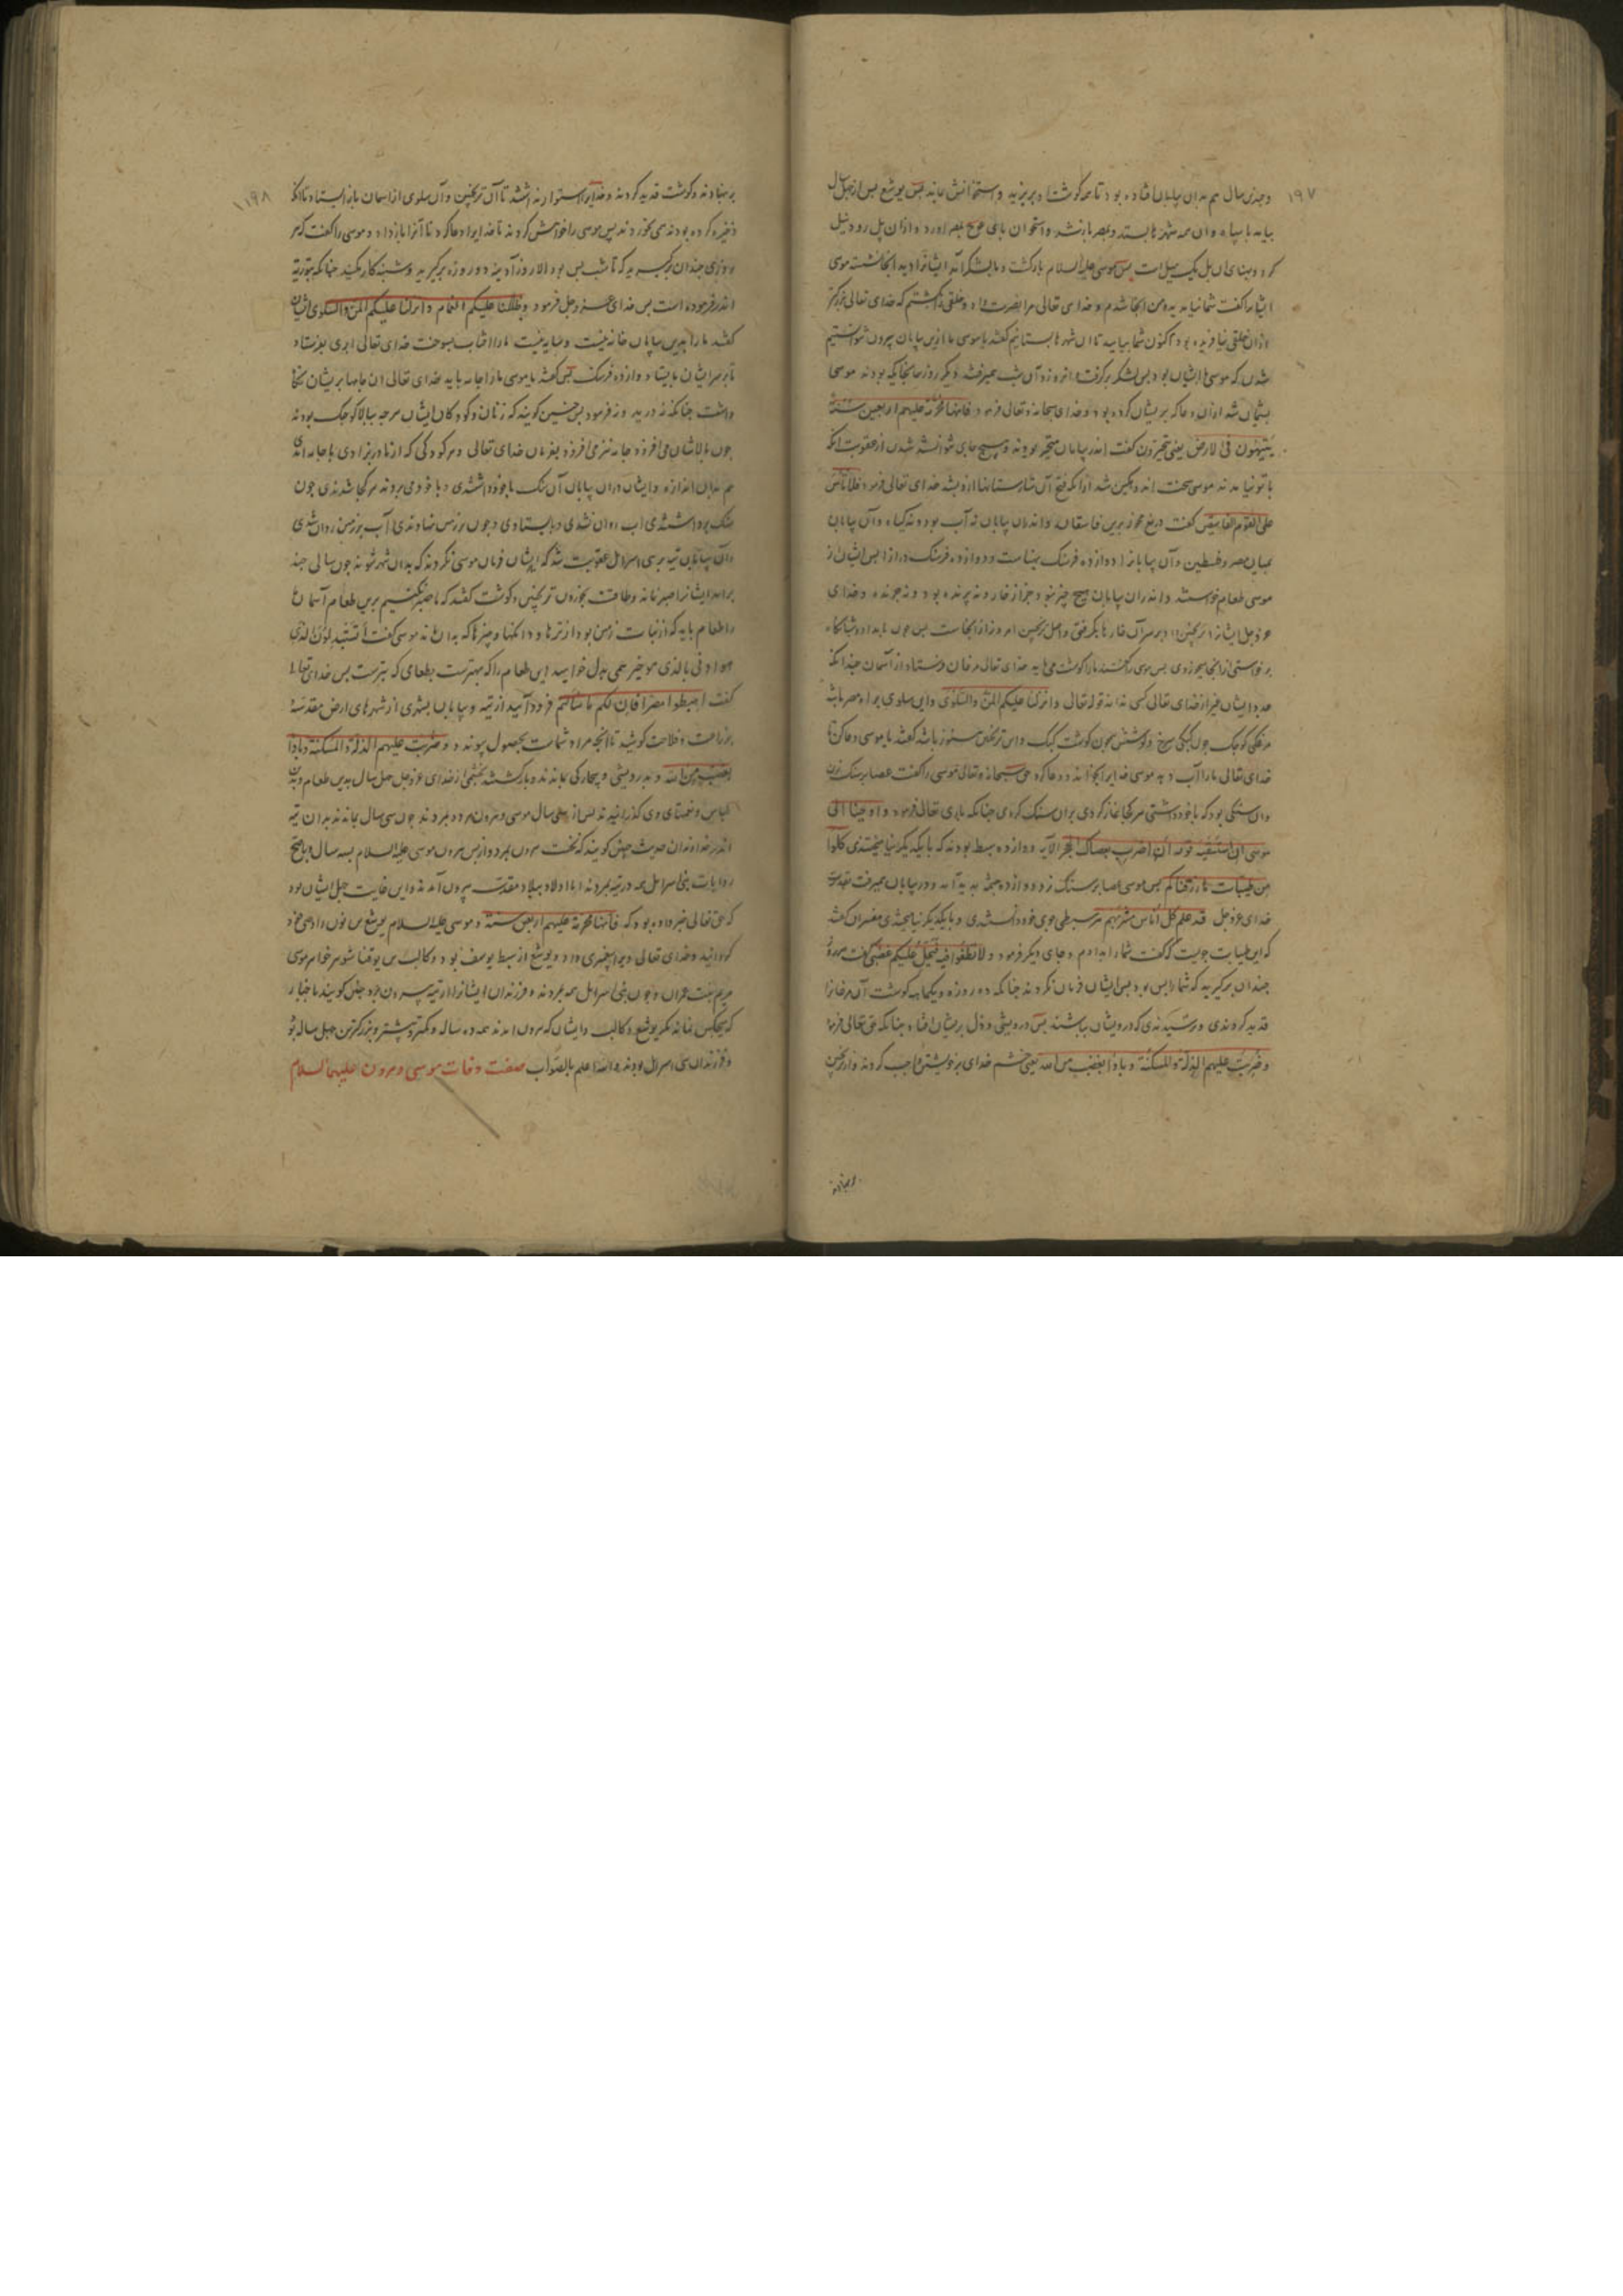 ۱۹۷
و چندین سال هم بدان بیابان افتاده بود تا همه گوشتها و بریزید و استخوانش بماند پس یوشع پس از چهل سال
بیامد با سپاه و آن همه شهرها بستد و بمصر بازشد و استخوان پای عوج بمصر آورد و از آن پل رود نیل
کرد و بنای آن پل یک میل است پس موسی علیه السلام بازگشت و بلشکر آمد ایشانرا دید آنجا نشسته موسی
ایشانرا گفت شما نیامدید و من آنجا شدم و خدای تعالی مرا نصرت داد و خلقی را بکشتم که خدای تعالی بزرگتر
از آن خلقی نیافریده بود اکنون شما بیایید تا آن شهرها بستانیم گفتند یا موسی ما ازین بیابان بیرون نتوانستیم
شدن که موسی با ایشان بود پس لشکر برگرفت و آن روز و آن شب همیرفتند دیگر روز همانجا که بودند موسی
پشیمان شد از آن دعا که بریشان کرده بود و خدای سبحانه و تعالی فرمود فانها محرمة علیهم اربعین سنة
یتیهون فی الارض یعنی متحیرون گفت اندر بیابان متحیر بودند و هیچ جای نتوانستند شدن از عقوبت آنکه
با تو نیامدند موسی سخت اندوهگین شد از آنکه فتح آن شارستانها ازو بشد خدای تعالی فرمود فلا تأس
علی القوم الفاسقین گفت دریغ مخور برین فاسقان و اندران بیابان نه آب بود و نه گیاه و آن بیابان
میان مصر و فلسطین و آن بیابانرا دوازده فرسنگ پهناست و دوازده فرسنگ دراز پس ایشان از
موسی طعام خواستند و اندران بیابان هیچ چیز نبود جز از خار و نه پرنده بود و نه چرنده و خدای
عز و جل ایشانرا ترنجبین داد بر سر آن خارها بگرفتی و اصل ترنجبین امروز از آنجاست پس چون بامداد و شبانگاه
برخواستی از آنجا بخوردی پس موسی را گفتند ما را گوشت می‌باید خدای تعالی مرغان فرستاد از آسمان چندانکه
عدد ایشان غیر از خدای تعالی کسی نداند قوله تعالی و انزلنا علیکم المن و السلوی و این سلوی براه مصر باشد
مرغکی کوچک چون کبکی سرخ و گوشتش چون گوشت کبک و این ترنجبین هنوز باشد گفتند یا موسی دعا کن تا
خدای تعالی ما را آب دهد موسی خدایرا بخواند و دعا کرد حق سبحانه و تعالی موسی را گفت عصا بر سنگ بزن
و آن سنگی بود که با خود داشتی هر کجا نماز کردی بران سنگ کردی چنانکه باری تعالی فرمود و اوحینا الی
موسی اذ استسقیه قومه ان اضرب بعصاک الحجر الآیه دوازده سبط بودند که با یکدیگر نیامیختندی کلوا
من طیبات ما رزقناکم پس موسی عصا بر سنگ زد و دوازده چشمه پدید آمد و در بیابان همیرفت بقدرت
خدای عز و جل قد علم کل اناس مشربهم هر سبطی جوی خود دانستندی و با یکدیگر نیامیختندی مفسران گفتند
که این طیبات چیست که گفت شما را بدادم و جای دیگر فرمود و لا تطغوا فیه فیحل علیکم غضبی گفت هر روز
چندان برگیرید که شما را بس بود پس ایشان فرمان نکردند چنانکه ده روزه و یکماهه گوشت آن مرغانرا
قدید کردندی و ترسیدندی که درویشان بباشند پس درویشی و ذل بریشان افتاد چنانکه حق تعالی فرمود
و ضربت علیهم الذلة و المسکنة و باؤا بغضب من الله یعنی خشم خدای بر خویشتن واجب کردند و از ترنجبین
برنهادند
۱۹۸
برنهادند و گوشت قدید کردند و خدایرا استوار نداشتند تا آن ترنجبین و آن سلوی از آسمان بازایستاد تا آنکه
ذخیره کرده بودند همی خوردند پس موسی را خواهش کردند تا خدایرا دعا کرد تا آنرا بازداد و موسی را گفت که هر
روزی چندان برگیرید که تا شب بس بود الا روز آدینه دو روزه برگیرید و شنبه کار مکنید چنانکه بتوریة
اندر فرموده است پس خدای عز و جل فرمود و ظللنا علیکم الغمام و انزلنا علیکم المن و السلوی ایشان
گفتند ما را بدین بیابان خانه نیست و سایه نیست ما را آفتاب بسوخت خدای تعالی ابری بفرستاد
تا بر سر ایشان بایستاد دوازده فرسنگ پس گفتند یا موسی ما را جامه باید خدای تعالی آن جامها بریشان نگاه
داشت چنانکه نه درید و نه فرسود پس چنین گویند که زنان و کودکان ایشان هر چه ببالا کوچک بودند
چون بالاشان می افزود جامه نیز می افزود بفرمان خدای تعالی و هر کودکی که از مادر بزادی با جامه آمدی
هم بدان اندازه و ایشان دران بیابان آن سنگ با خود داشتندی و با خود می بردند هر کجا شدندی چون
سنگ برداشتندی آب روان نشدی و بایستادی و چون بر زمین نهادندی آب بر زمین روان شدی
و آن بیابان تیه بر بنی اسرائیل عقوبت شد که ایشان فرمان موسی نکردند که بدان شهر شوند چون سالی چند
برآمد ایشانرا صبر نماند و طاقت بخوردن ترنجبین و گوشت گفتند که ما صبر نکنیم برین طعام آسمان
ما را طعام باید که از نبات زمین بود از ترها و دانکها و چیزها که بدان ماند موسی گفت أتستبدلون الذی
هو ادنی بالذی هو خیر همی بدل خواهید این طعام را که بهترست بطعامی که بترست پس خدای تعالی
گفت اهبطوا مصرا فان لکم ما سألتم فرود آیید از تیه و بیابان بشهری از شهرهای ارض مقدسه
بزراعت و فلاحت کوشید تا آنچه مراد شماست بحصول پیوندد و ضربت علیهم الذلة و المسکنة و باؤا
بغضب من الله و بدرویشی و بیچارگی بماندند و بازگشتند بخشمی از خدای عز و جل چهل سال بدین طعام و بدین
لباس و نعمتهای وی گذرانیدند پس از سی سال موسی و هرون هر دو بمردند چون سی سال بماندند بدان تیه
اندر خداوندان حدیث چنین گویند که نخست هرون بمرد و از پس هرون موسی علیه السلام بسه سال و باصح
روایات بنی اسرائیل همه در تیه بمردند اما اولاد ببلاد مقدسه بیرون آمدند و این غایت جهل ایشان بود
که حق تعالی خبر داده بود که فانها محرمة علیهم اربعین سنة و موسی علیه السلام یوشع بن نون را وصی خود
گردانید و خدای تعالی ویرا پیغمبری داد و یوشع از سبط یوسف بود و کالب بن یوقنا شوهر خواهر موسی
مریم بنت عمران و چون بنی اسرائیل همه بمردند و فرزندان ایشانرا از تیه بیرون برد چنین گویند باخبار
که هیچکس نماند مگر یوشع و کالب و ایشان که بیرون آمدند همه ده ساله و کمتر و بیشتر و بزرگترین چهل ساله بود
و فرزندان بنی اسرائیل بودند والله اعلم بالصواب صفت وفات موسی و هرون علیهما السلام